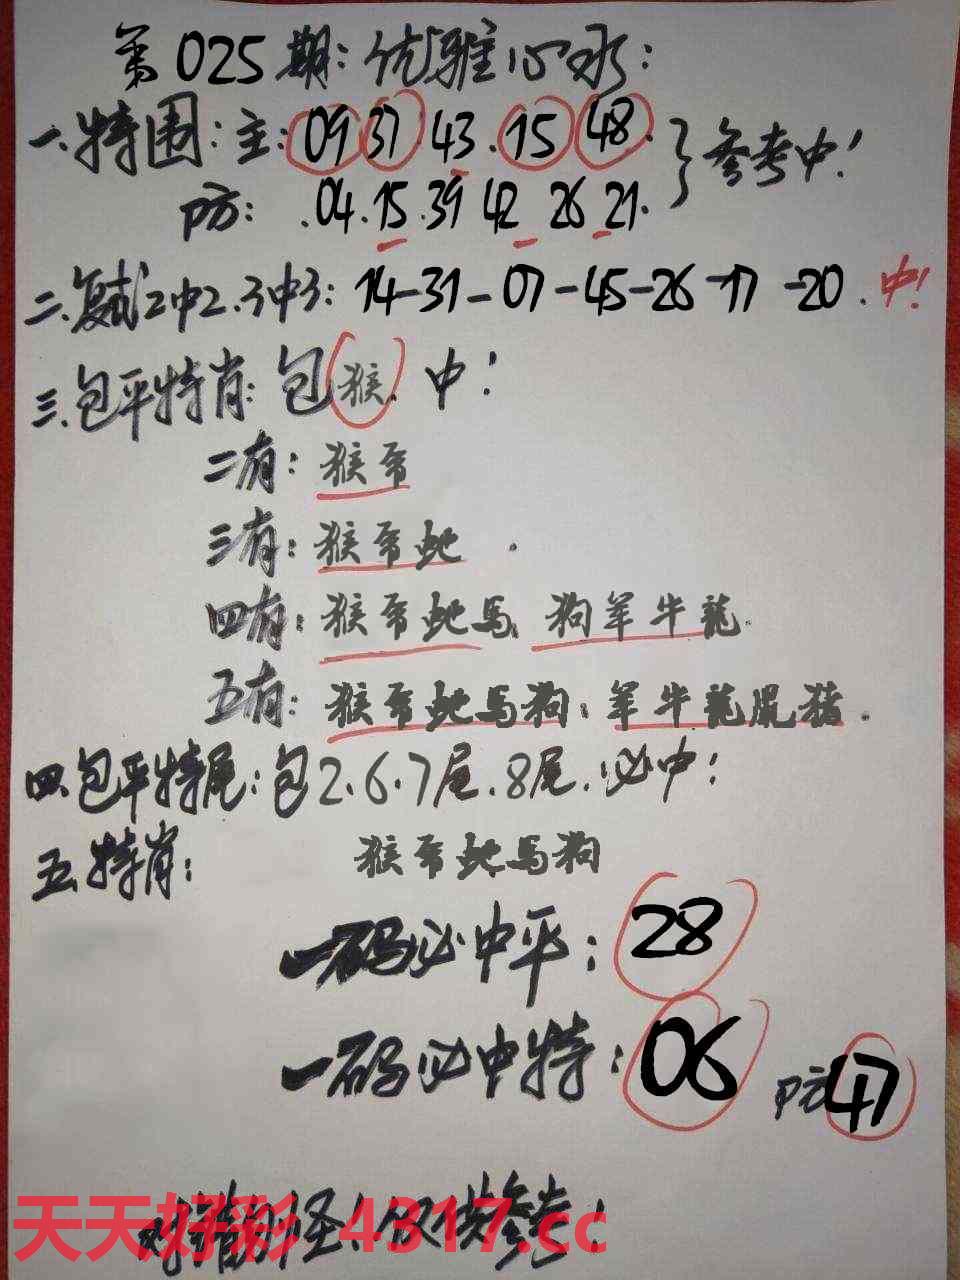 第025期:优雅心水:
一.特围:主:09 37.43.15 48.}参考中!
防:.04.15.39 42 26 21.
二.复式2中2.3中3:14-31-07-45-26-17-20.中!
三.包平特肖:包猴.中!
二有:猴鸡
三有:猴鸡蛇.
四有:猴鸡蛇马.狗羊牛龍.
五有:猴鸡蛇马狗.羊牛龍鼠猪.
四.包平特尾:包2.6.7尾.8尾.必中!
五.特肖:猴鸡蛇马狗
一码必中平:28
一码必中特:06 防47
对错勿怪!仅供参考!
天天好彩 4317.cc